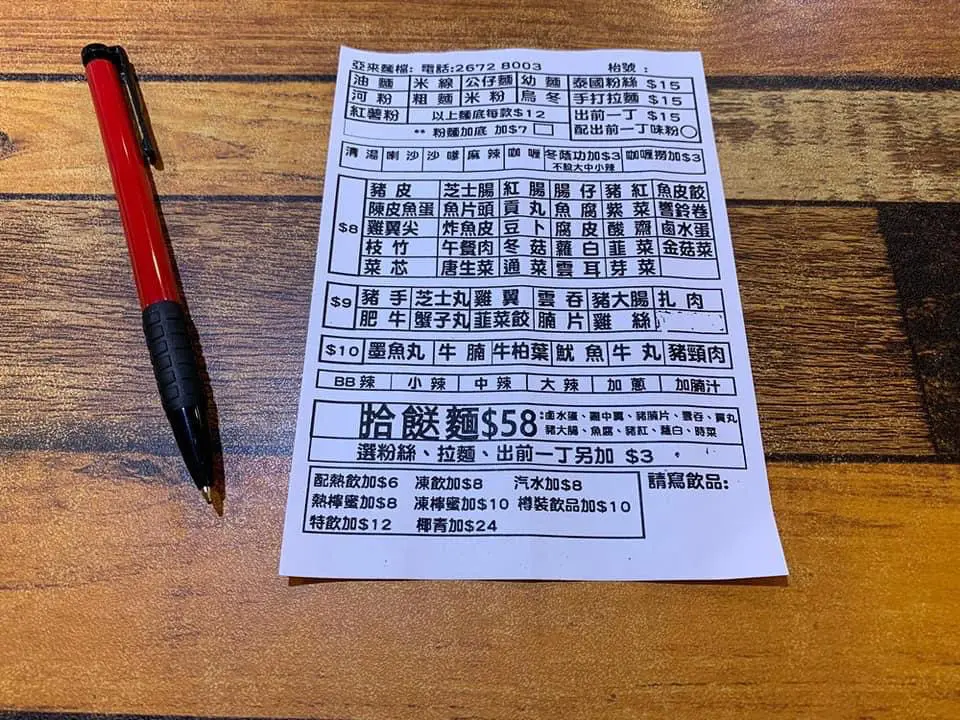 亞來麵檔: 電話:2672 8003 枱號:
油麵 米線 公仔麵 幼麵 泰國粉絲 $15
河粉 粗麵 米粉 烏冬 手打拉麵 $15
紅薯粉 以上麵底每款$12 出前一丁 $15
** 粉麵加底 加$7 配出前一丁味粉
清湯 喇沙 沙嗲 麻辣 咖喱 冬蔭功加$3 咖喱撈加$3
不設大中小辣
豬皮 芝士腸 紅腸 腸仔 豬紅 魚皮餃
陳皮魚蛋 魚片頭 貢丸 魚腐 紫菜 響鈴卷
$8 雞翼尖 炸魚皮 豆卜 腐皮 酸齋 鹵水蛋
枝竹 午餐肉 冬菇 蘿白 韮菜 金菇菜
菜芯 唐生菜 通菜 雲耳 芽菜
$9 豬手 芝士丸 雞翼 雲吞 豬大腸 扎肉
肥牛 蟹子丸 韮菜餃 腩片 雞絲
$10 墨魚丸 牛腩 牛柏葉 魷魚 牛丸 豬頸肉
BB辣 小辣 中辣 大辣 加蔥 加腩汁
拾餸麵$58 :鹵水蛋、雞中翼、豬腩片、雲吞、貢丸
豬大腸、魚腐、豬紅、蘿白、時菜
選粉絲、拉麵、出前一丁另加 $3
配熱飲加$6 凍飲加$8 汽水加$8 請寫飲品:
熱檸蜜加$8 凍檸蜜加$10 樽裝飲品加$10
特飲加$12 椰青加$24